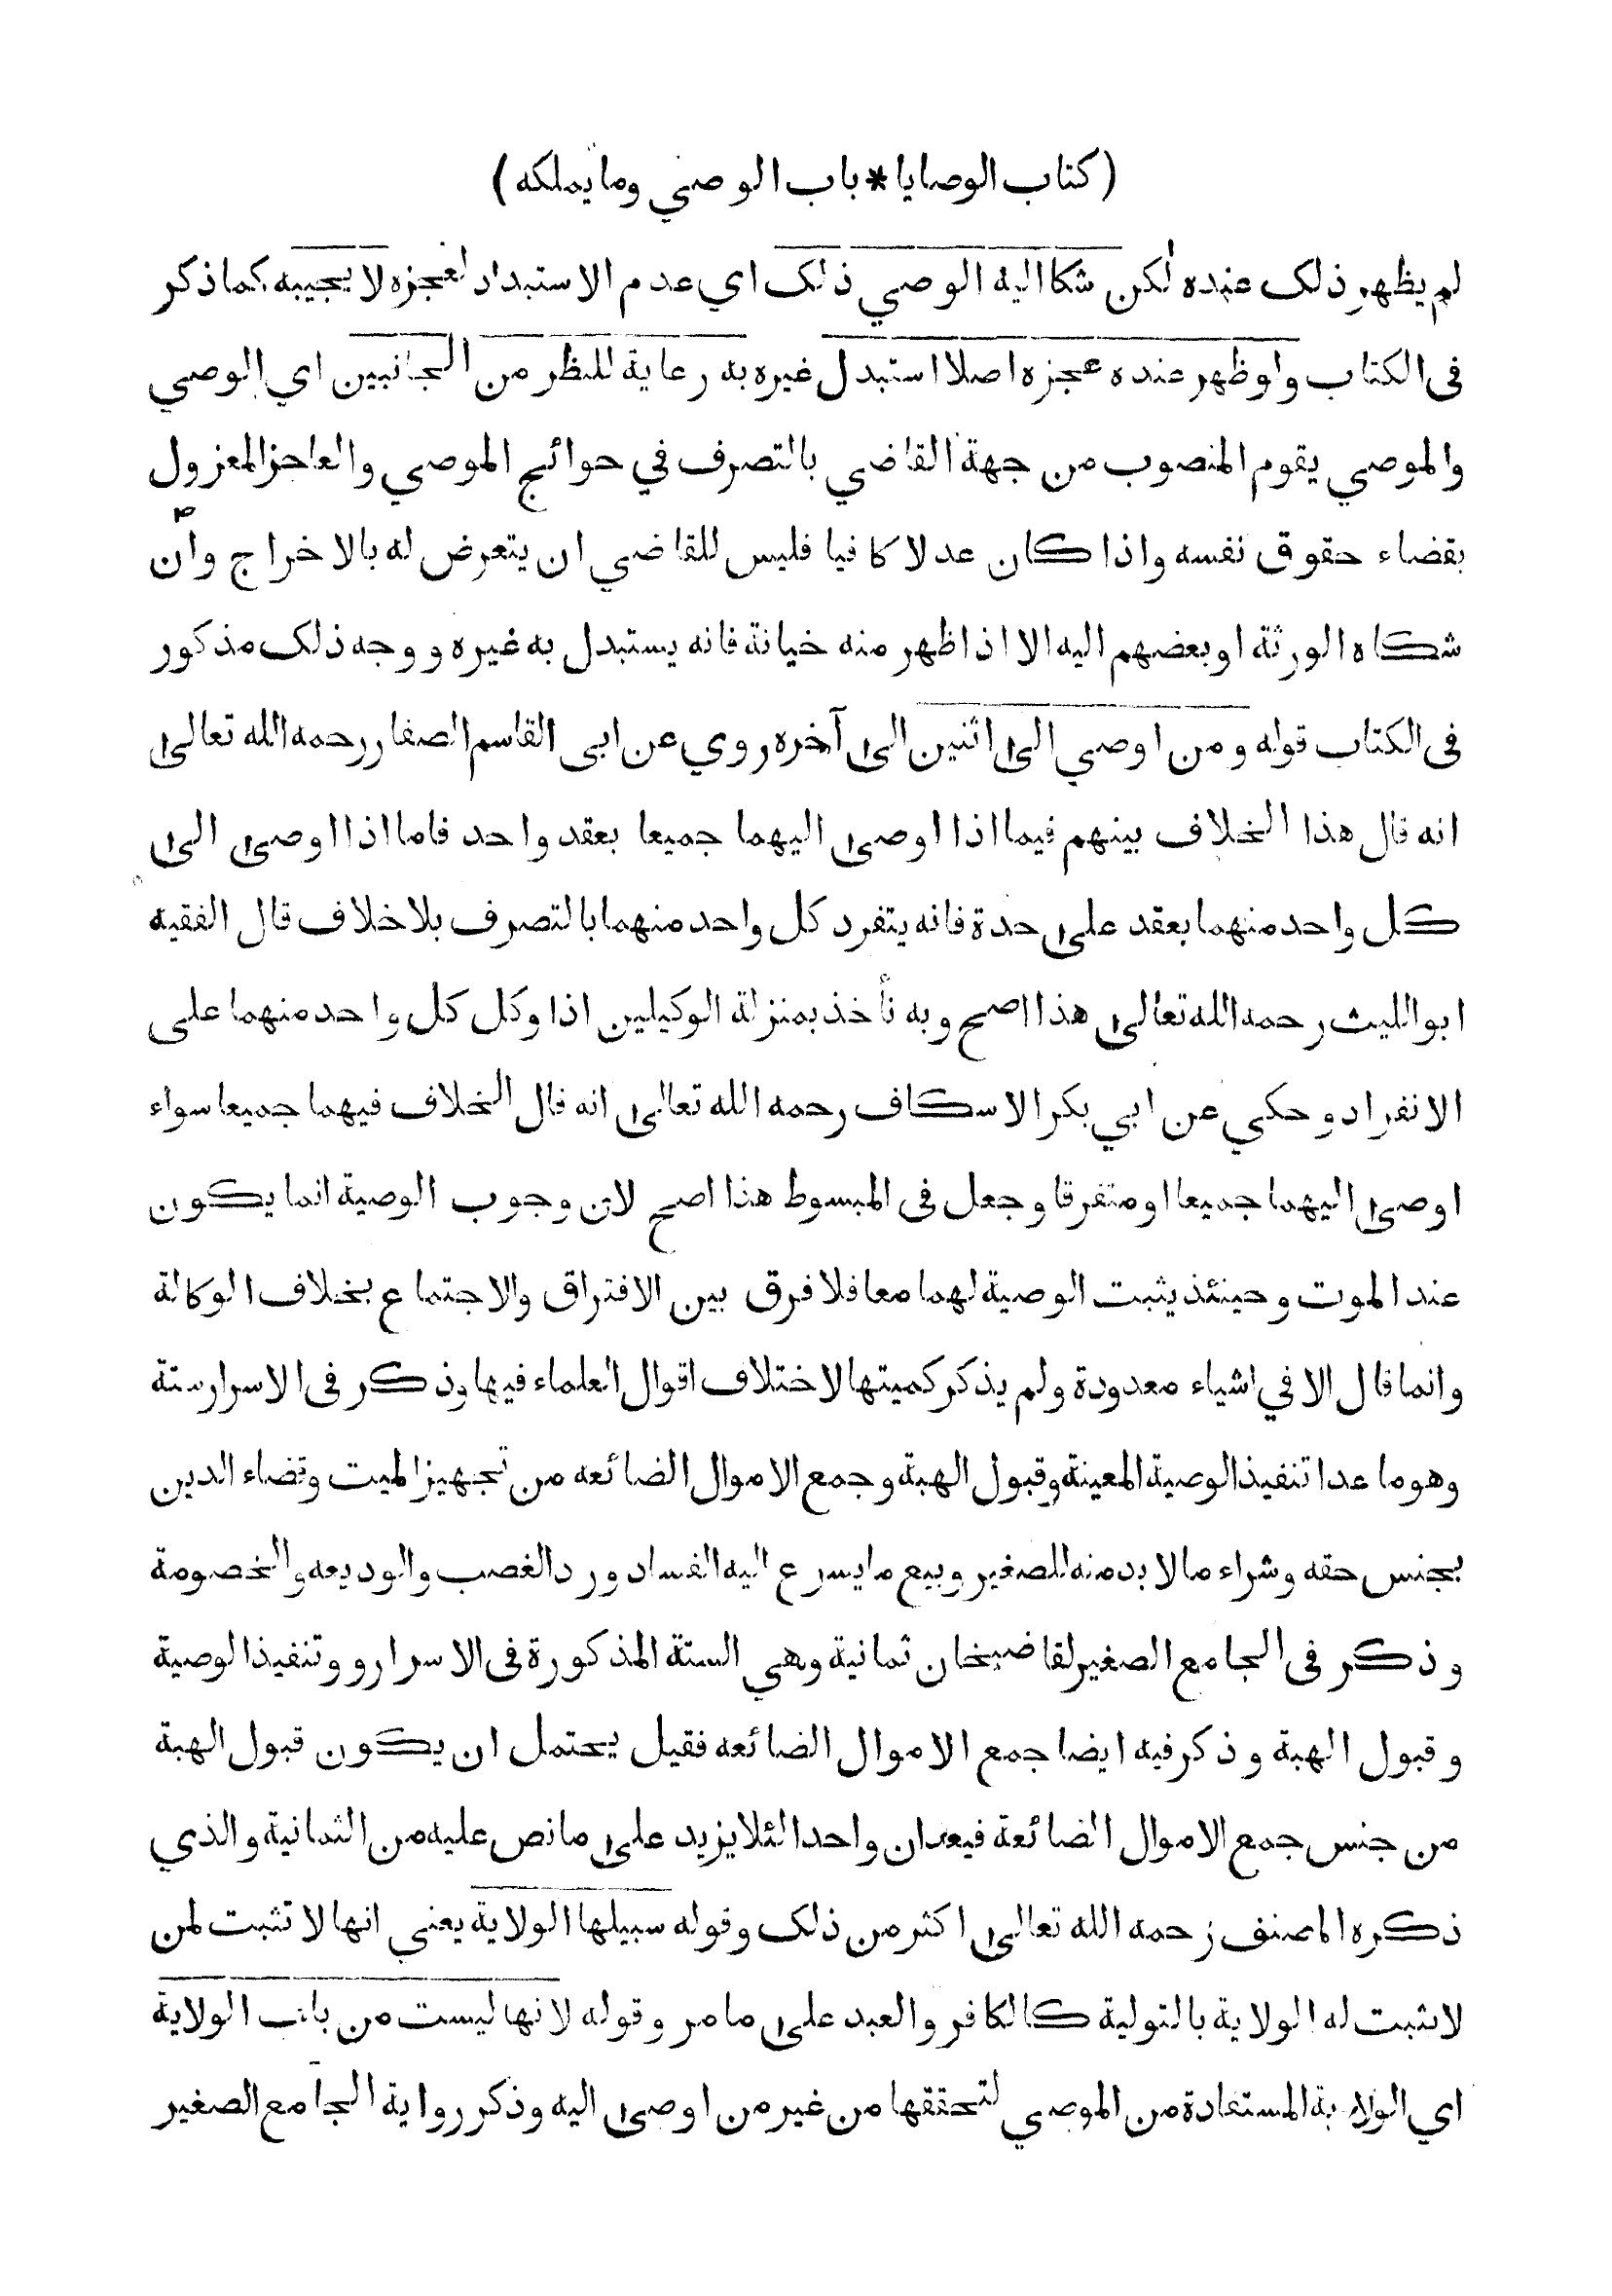 ( كتاب الوصايا * باب الوصي وما يملكه )
لم يظهر ذلك عنده لكن شكا اليه الوصي ذلك اي عدم الاستبداد لعجزه لا يجيبه كما ذكر
فى الكتاب ولو ظهر عنده عجزه اصلا استبدل غيره به رعاية للنظر من الجانبين اي الوصي
والموصي يقوم المنصوب من جهة القاضي بالتصرف في حوائج الموصي والعاجز المعزول
بقضاء حقوق نفسه واذا كان عدلا كافيا فليس للقاضي ان يتعرض له بالاخراج وان
شكاه الورثة او بعضهم اليه الا اذا ظهر منه خيانة فانه يستبدل به غيره ووجه ذلك مذكور
فى الكتاب قوله ومن اوصي الى اثنين الى آخره روي عن ابى القاسم الصفار رحمه الله تعالى
انه قال هذا الخلاف بينهم فيما اذا اوصى اليهما جميعا بعقد واحد فاما اذا اوصى الى
كل واحد منهما بعقد على حدة فانه يتفرد كل واحد منهما بالتصرف بلا خلاف قال الفقيه
ابو الليث رحمه الله تعالى هذا اصح وبه نأخذ بمنزلة الوكيلين اذا وكل كل واحد منهما على
الانفراد وحكي عن ابي بكر الاسكاف رحمه الله تعالى انه قال الخلاف فيهما جميعا سواء
اوصى اليهما جميعا او متفرقا وجعل فى المبسوط هذا اصح لان وجوب الوصية انما يكون
عند الموت وحينئذ يثبت الوصية لهما معا فلا فرق بين الافتراق والاجتماع بخلاف الوكالة
وانما قال الا في اشياء معدودة ولم يذكر كميتها لاختلاف اقوال العلماء فيها وذكر فى الاسرار ستة
وهو ما عدا تنفيذ الوصية المعينة وقبول الهبة وجمع الاموال الضائعه من تجهيز الميت وقضاء الدين
بجنس حقه وشراء ما لا بد منه للصغير وبيع ما يسرع اليه الفساد ورد الغصب والوديعه والخصومة
وذكر فى الجامع الصغير لقاضيخان ثمانية وهي الستة المذكورة فى الاسرار و وتنفيذ الوصية
وقبول الهبة وذكر فيه ايضا جمع الاموال الضائعه فقيل يحتمل ان يكون قبول الهبة
من جنس جمع الاموال الضائعة فيعدان واحدا لئلا يزيد على ما نص عليه من الثمانية والذي
ذكره المصنف رحمه الله تعالى اكثر من ذلك وقوله سبيلها الولاية يعني انها لا تثبت لمن
لا يثبت له الولاية بالتولية كالكافر والعبد على ما مر وقوله لانها ليست من باب الولاية
اي الولاية المستفادة من الموصي لتحققها من غير من اوصى اليه وذكر رواية الجامع الصغير